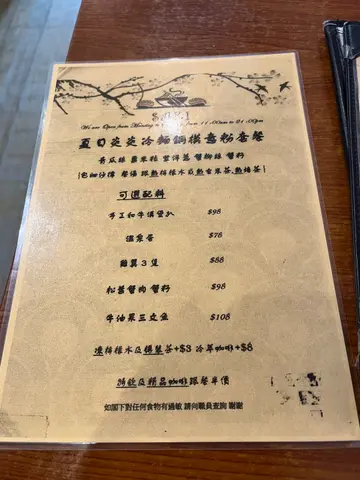 We are Open from Monday to from 11:00am to 21:00pm
夏日炎炎冷麵鋼橫意粉套餐
青瓜絲 粟米粒 紫洋蔥 蟹柳絲 蟹籽
(包細沙律 餐湯 跟熱檸檬水或熱雪果茶,熱綠茶)
可選配料
手工和牛漢堡扒 $98
溫泉蛋 $78
雞翼3隻 $88
松葉蟹肉 蟹籽 $98
牛油果三文魚 $108
凍檸檬水及錫蘭茶+$3 冷萃咖啡+$8
特飲及精品咖啡跟餐半價
如閣下對任何食物有過敏 請向職員查詢 謝謝